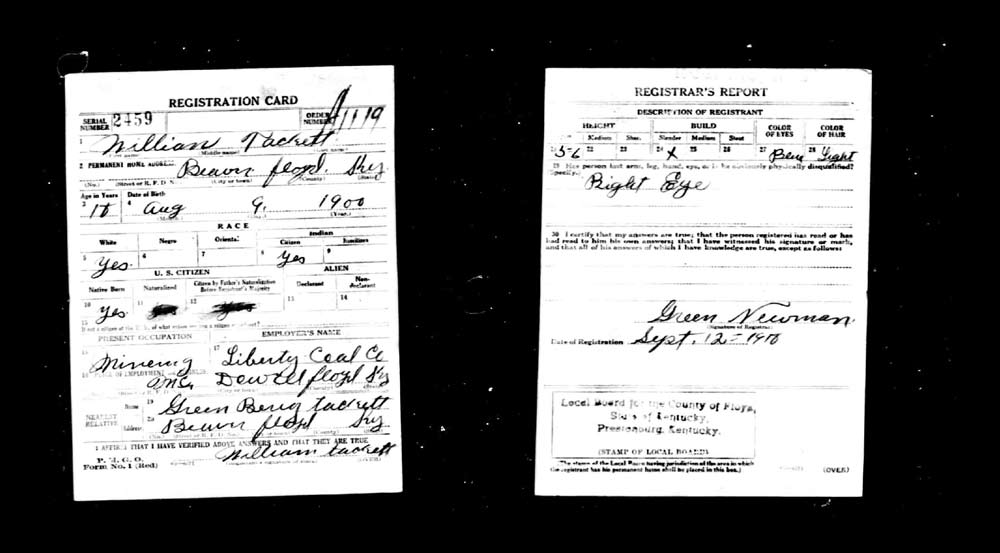 REGISTRATION CARD
SERIAL NUMBER 2459 ORDER NUMBER A1119
1 William Tackett
(First name) (Middle name) (Last name)
2 PERMANENT HOME ADDRESS: Beaver floyd. Ky
(No.) (Street or R. F. D. No.) (City or town) (County) (State)
Age in Years Date of Birth
3 18 4 Aug 9. 1900
(Month.) (Day.) (Year.)
RACE
White Negro Oriental Indian
Citizen Noncitizen
5 Yes 6 7 8 Yes 9
U. S. CITIZEN ALIEN
Native Born Naturalized Citizen by Father's Naturalization Before Registrant's Majority Declarant Non-declarant
10 Yes 11 12 13 14
15 If not a citizen of the U. S., of what nation are you a citizen or subject?
PRESENT OCCUPATION EMPLOYER'S NAME
16 Minering 17 Liberty Coal Co
18 PLACE OF EMPLOYMENT OR BUSINESS:
floyd Ky
(No.) (Street or R. F. D. No.) (City or town) (County) (State)
NEAREST RELATIVE Name 19 Green Tackett
Address 20 Beaver floyd Ky
(No.) (Street or R. F. D. No.) (City or town) (County) (State)
I AFFIRM THAT I HAVE VERIFIED ABOVE ANSWERS AND THAT THEY ARE TRUE
P. M. G. O.
Form No. 1 (Red) William tackett
(Registrant's signature or mark) (OVER)
REGISTRAR'S REPORT
DESCRIPTION OF REGISTRANT
HEIGHT BUILD COLOR OF EYES COLOR OF HAIR
Tall Medium Short Slender Medium Stout
21 5-6 22 23 24 X 25 26 27 Blue 28 Light
29 Has person lost arm, leg, hand, eye, or is he obviously physically disqualified?
(Specify.)
Right Eye
30 I certify that my answers are true; that the person registered has read or has
had read to him his own answers; that I have witnessed his signature or mark,
and that all of his answers of which I have knowledge are true, except as follows:
Green Newman
(Signature of Registrar)
Date of Registration Sept. 12 = 1918
Local Board for the County of Floyd,
State of Kentucky,
Prestonburg, Kentucky.
(STAMP OF LOCAL BOARD)
(The stamp of the Local Board having jurisdiction of the area in which
the registrant has his permanent home shall be placed in this box.)
(OVER)